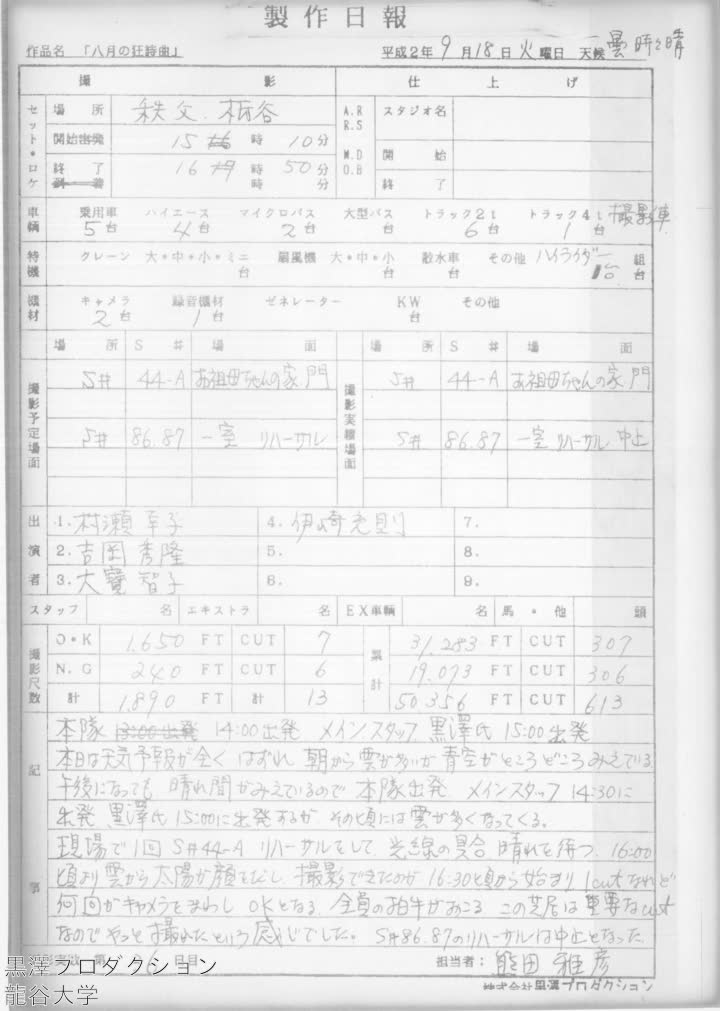 製作日報
作品名 「八月の狂詩曲」 平成2年9月18日 火曜日 天候 曇時々晴
撮影 仕上げ
セット・ロケ 場所 秩父 栃谷 A.R R.S スタジオ名
開始 15時10分 M.D O.B 開始
終了 16時50分 終了
時 分
車輌 乗用車 ハイエース マイクロバス 大型バス トラック2t トラック4t 撮影車
5台 4台 2台 台 6台 1台
特機 クレーン 大・中・小・ミニ 扇風機 大・中・小 散水車 その他 ハイライダー 組
台 台 台 1台 台
機材 キャメラ 録音機材 ゼネレーター KW その他
2台 1台 台
場所 S# 場面 場所 S# 場面
撮影予定場面 S# 44-A お祖母ちゃんの家.門 撮影実績場面 S# 44-A お祖母ちゃんの家.門
S# 86.87 一室 リハーサル S# 86.87 一室 リハーサル 中止
出演者 1.村瀬幸子 4.伊崎充則 7.
2.吉岡秀隆 5. 8.
3.大寶智子 6. 9.
スタッフ 名 エキストラ 名 EX車輌 名 馬・他 頭
撮影尺数 O・K 1.650 FT CUT 7 累計 31.283 FT CUT 307
N.G 240 FT CUT 6 19.073 FT CUT 306
計 1.890 FT 計 13 50.356 FT CUT 613
記事
本隊 13:00出発 14:00出発 メインスタッフ 黒澤氏 15:00出発
本日は天気予報が全くはずれ 朝から雲が多いが青空がところどころみえている
午後になっても 晴れ間がみえているので 本隊出発 メインスタッフ 14:30に
出発 黒澤氏 15:00に出発するが その頃には雲が多くなってくる。
現場で1回 S#44-A リハーサルをして 光線の具合 晴れを待つ 16:00
頃より雲から太陽が顔をだし 撮影できたのが 16:30頃から始まり 1cutなれど
何回かキャメラをまわし OKとなる 全員の拍手がおこる この芝居は重要なcut
なのでやっと撮れたという感じでした。 S#86.87のリハーサルは中止となった
日目 担当者: 熊田雅彦
株式会社黒澤プロダクション
黒澤プロダクション
龍谷大学